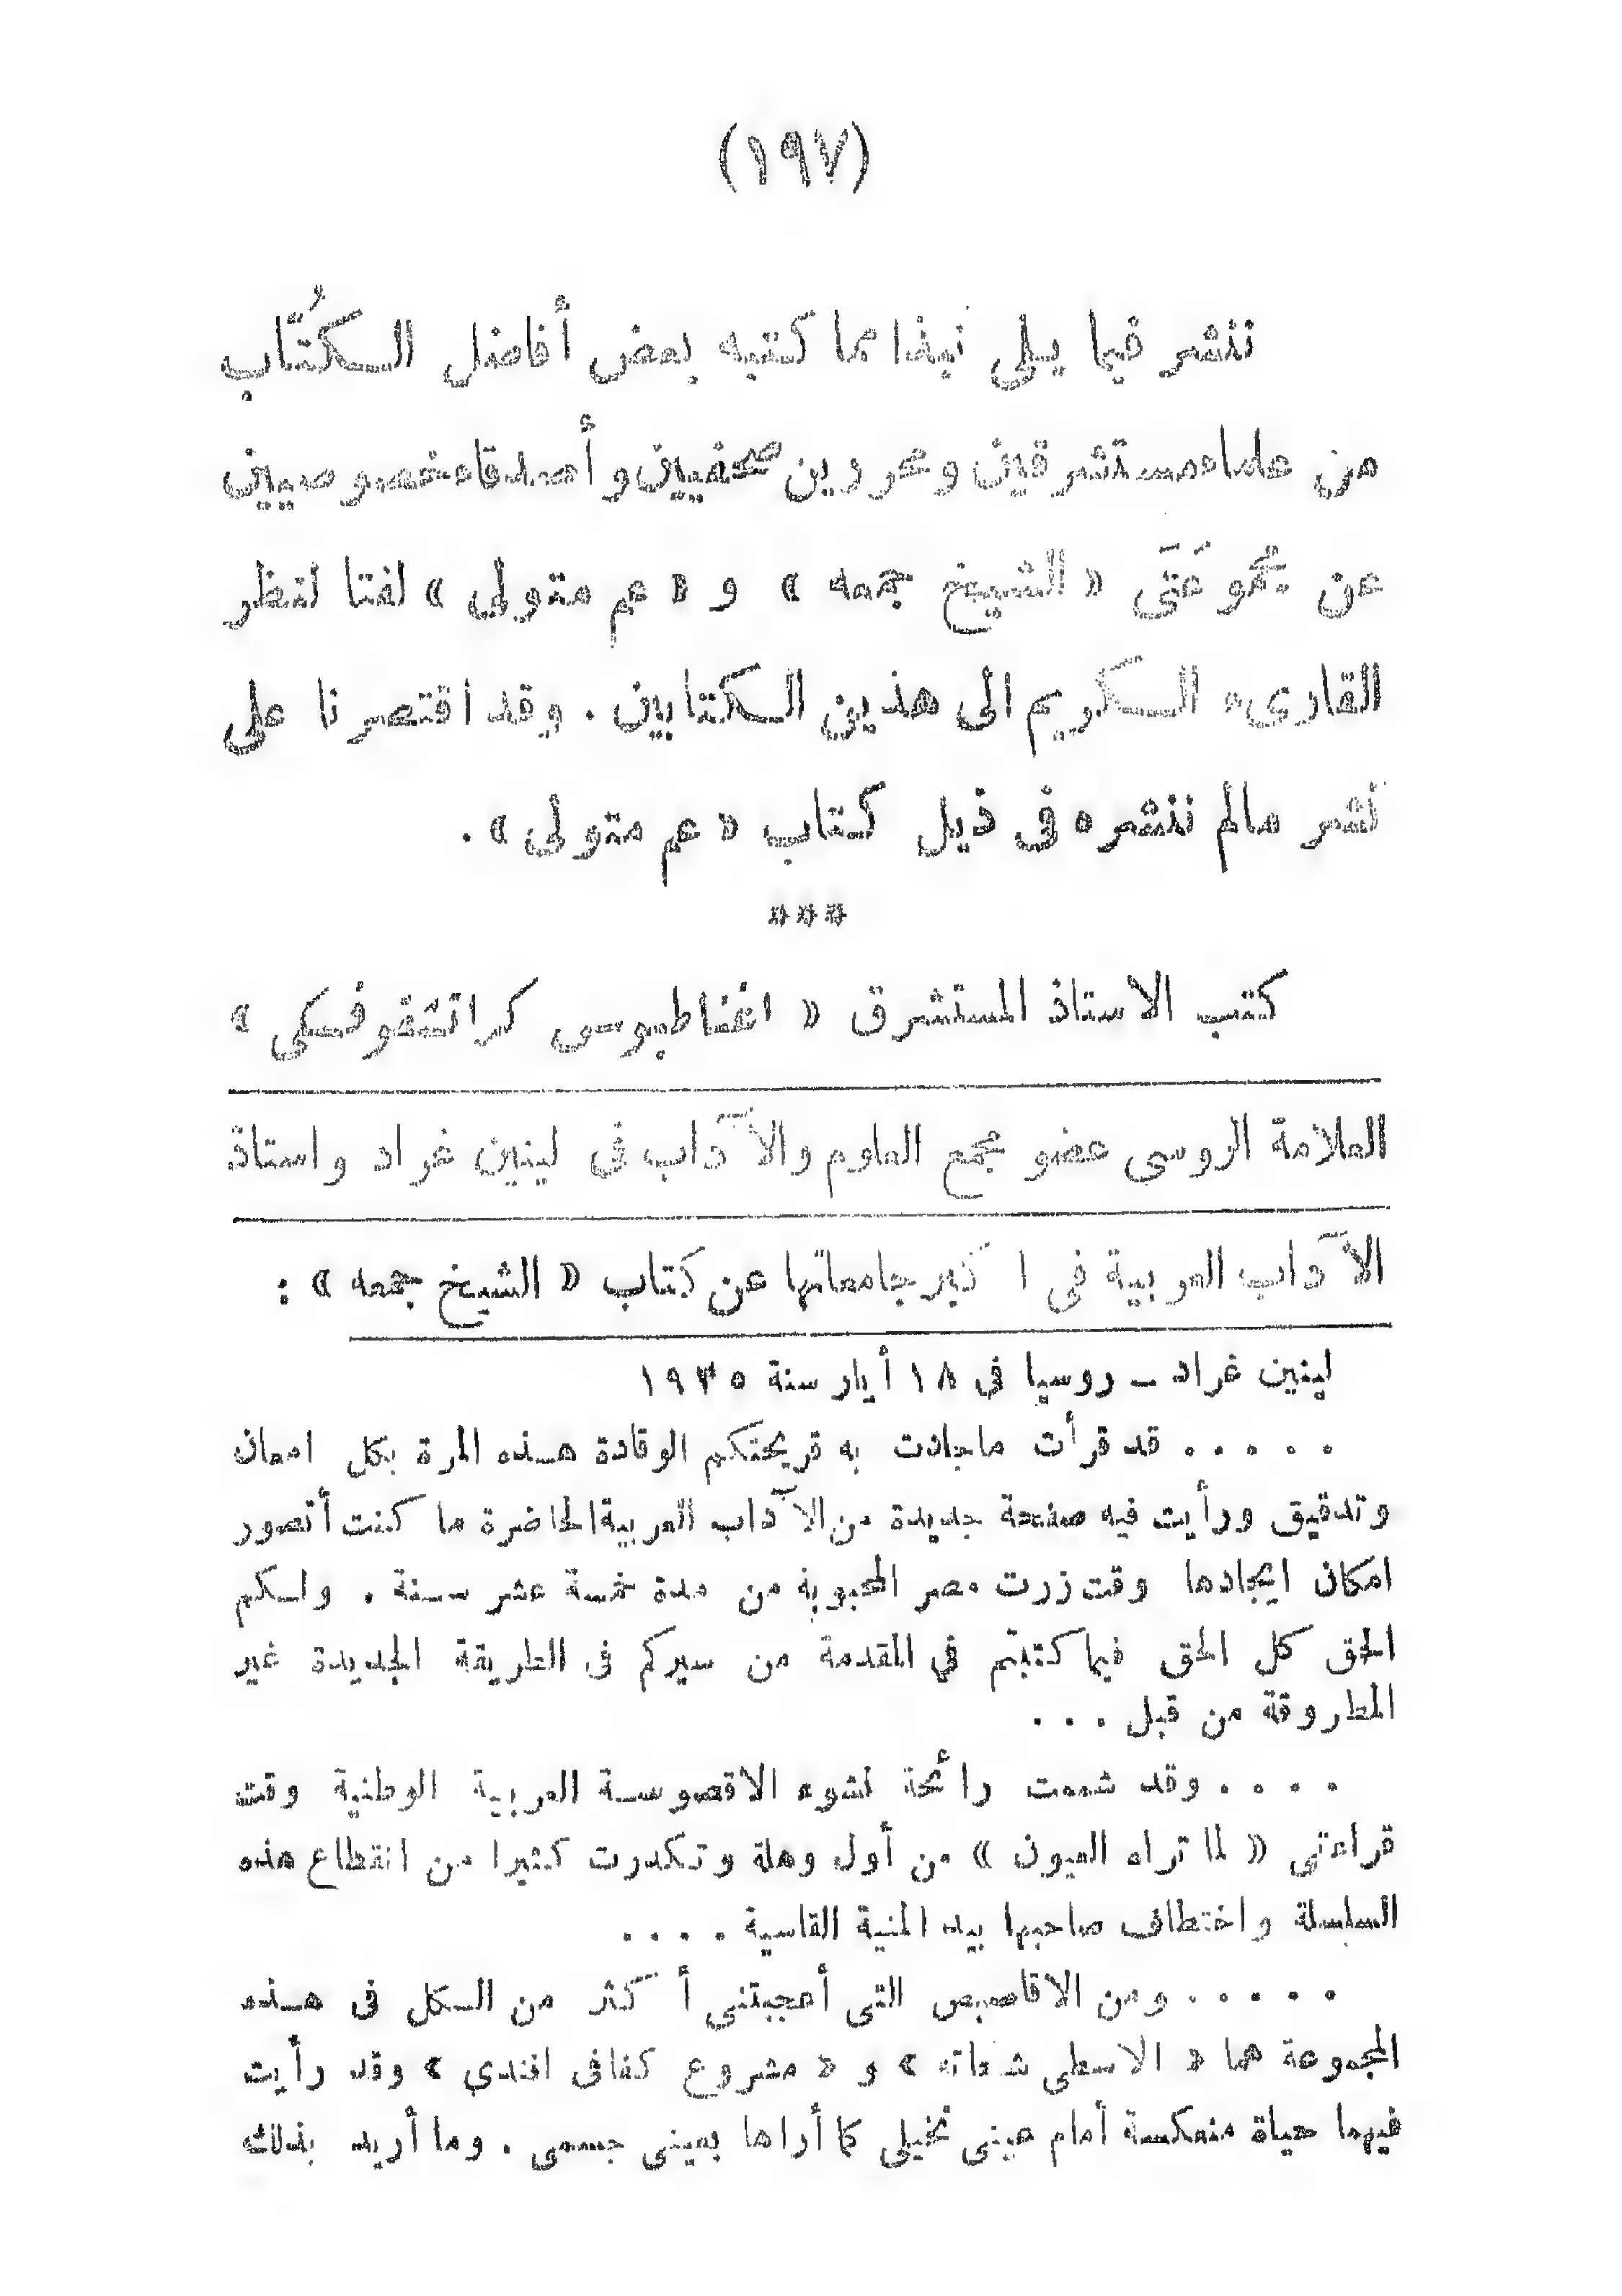 (١٩٧)
ننشر فيما يلى نبذا مما كتبه بعض أفاضل الكُتّاب
من علماء مستشرقين ومحررين صحفيين وأصدقاء خصوصيين
عن مجموعَتَى « الشيخ جمعه » و « عم متولى » لفتا لنظر
القارىء الكريم الى هذين الكتابين . وقد اقتصرنا على
نشر مالم ننشره فى ذيل كتاب « عم متولى » .
***
كتب الاستاذ المستشرق « اغناطيوس كراتشقوفسكى »
العلامة الروسى عضو مجمع العلوم والآداب فى لينين غراد واستاذ
الآداب العربية فى اكبر جامعاتها عن كتاب « الشيخ جمعه » :
لينين غراد ـ روسيا فى ١٨ أيار سنة ١٩٢٥
. . . . . قد قرأت ماجادت به قريحتكم الوقادة هذه المرة بكل امعان
وتدقيق ورأيت فيه صفحة جديدة من الآداب العربية الحاضرة ما كنت أتصور
امكان ايجادها وقت زرت مصر المحبوبة من مدة خمسة عشر سنة . ولكم
الحق كل الحق فيما كتبتم في المقدمة من سيركم فى الطريقة الجديدة غير
المطروقة من قبل . . .
. . . . وقد شممت رائحة نشوء الاقصوصة العربية الوطنية وقت
قراءتى « لما تراه العيون » من أول وهلة وتكدرت كثيرا من انقطاع هذه
السلسلة واختطاف صاحبها بيد المنية القاسية . . . .
. . . . . ومن الاقاصيص التى أعجبتنى أكثر من الكل فى هذه
المجموعة هما « الاسطى شحاته » و « مشروع كفافى افندي » وقد رأيت
فيهما حياة منعكسة أمام عينى تخيلى كما أراها بعينى جسمى . وما أريد بذلك